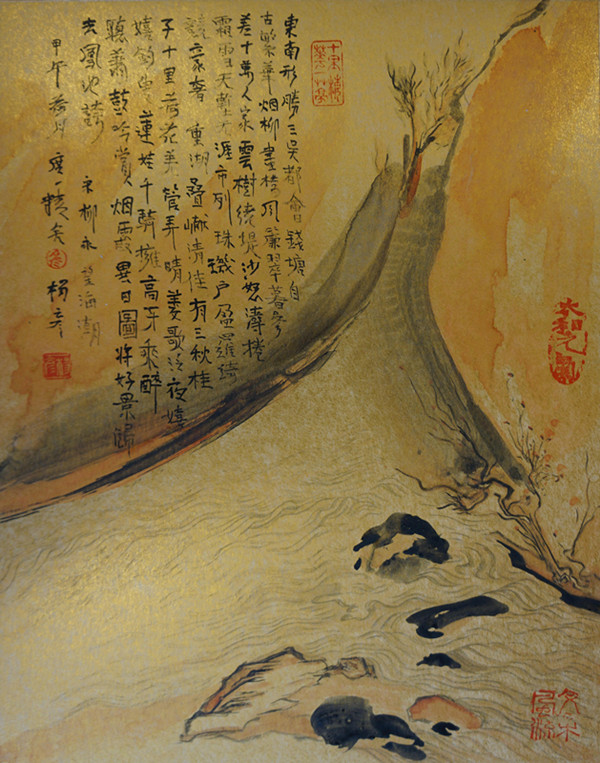 東南形勝三吳都會錢塘自
古繁華烟柳畫橋風簾翠幕參
差十萬人家雲樹繞堤沙怒濤捲
霜雪天塹无涯市列珠璣戶盈羅綺
競豪奢重湖疊巘清佳有三秋桂
子十里荷花羌管弄晴菱歌泛夜嬉
嬉釣叟蓮娃千騎擁高牙乘醉
聽簫鼓吟賞烟霞異日圖將好景歸
去鳳池誇 宋柳永望海潮
甲午荷月
楊彥